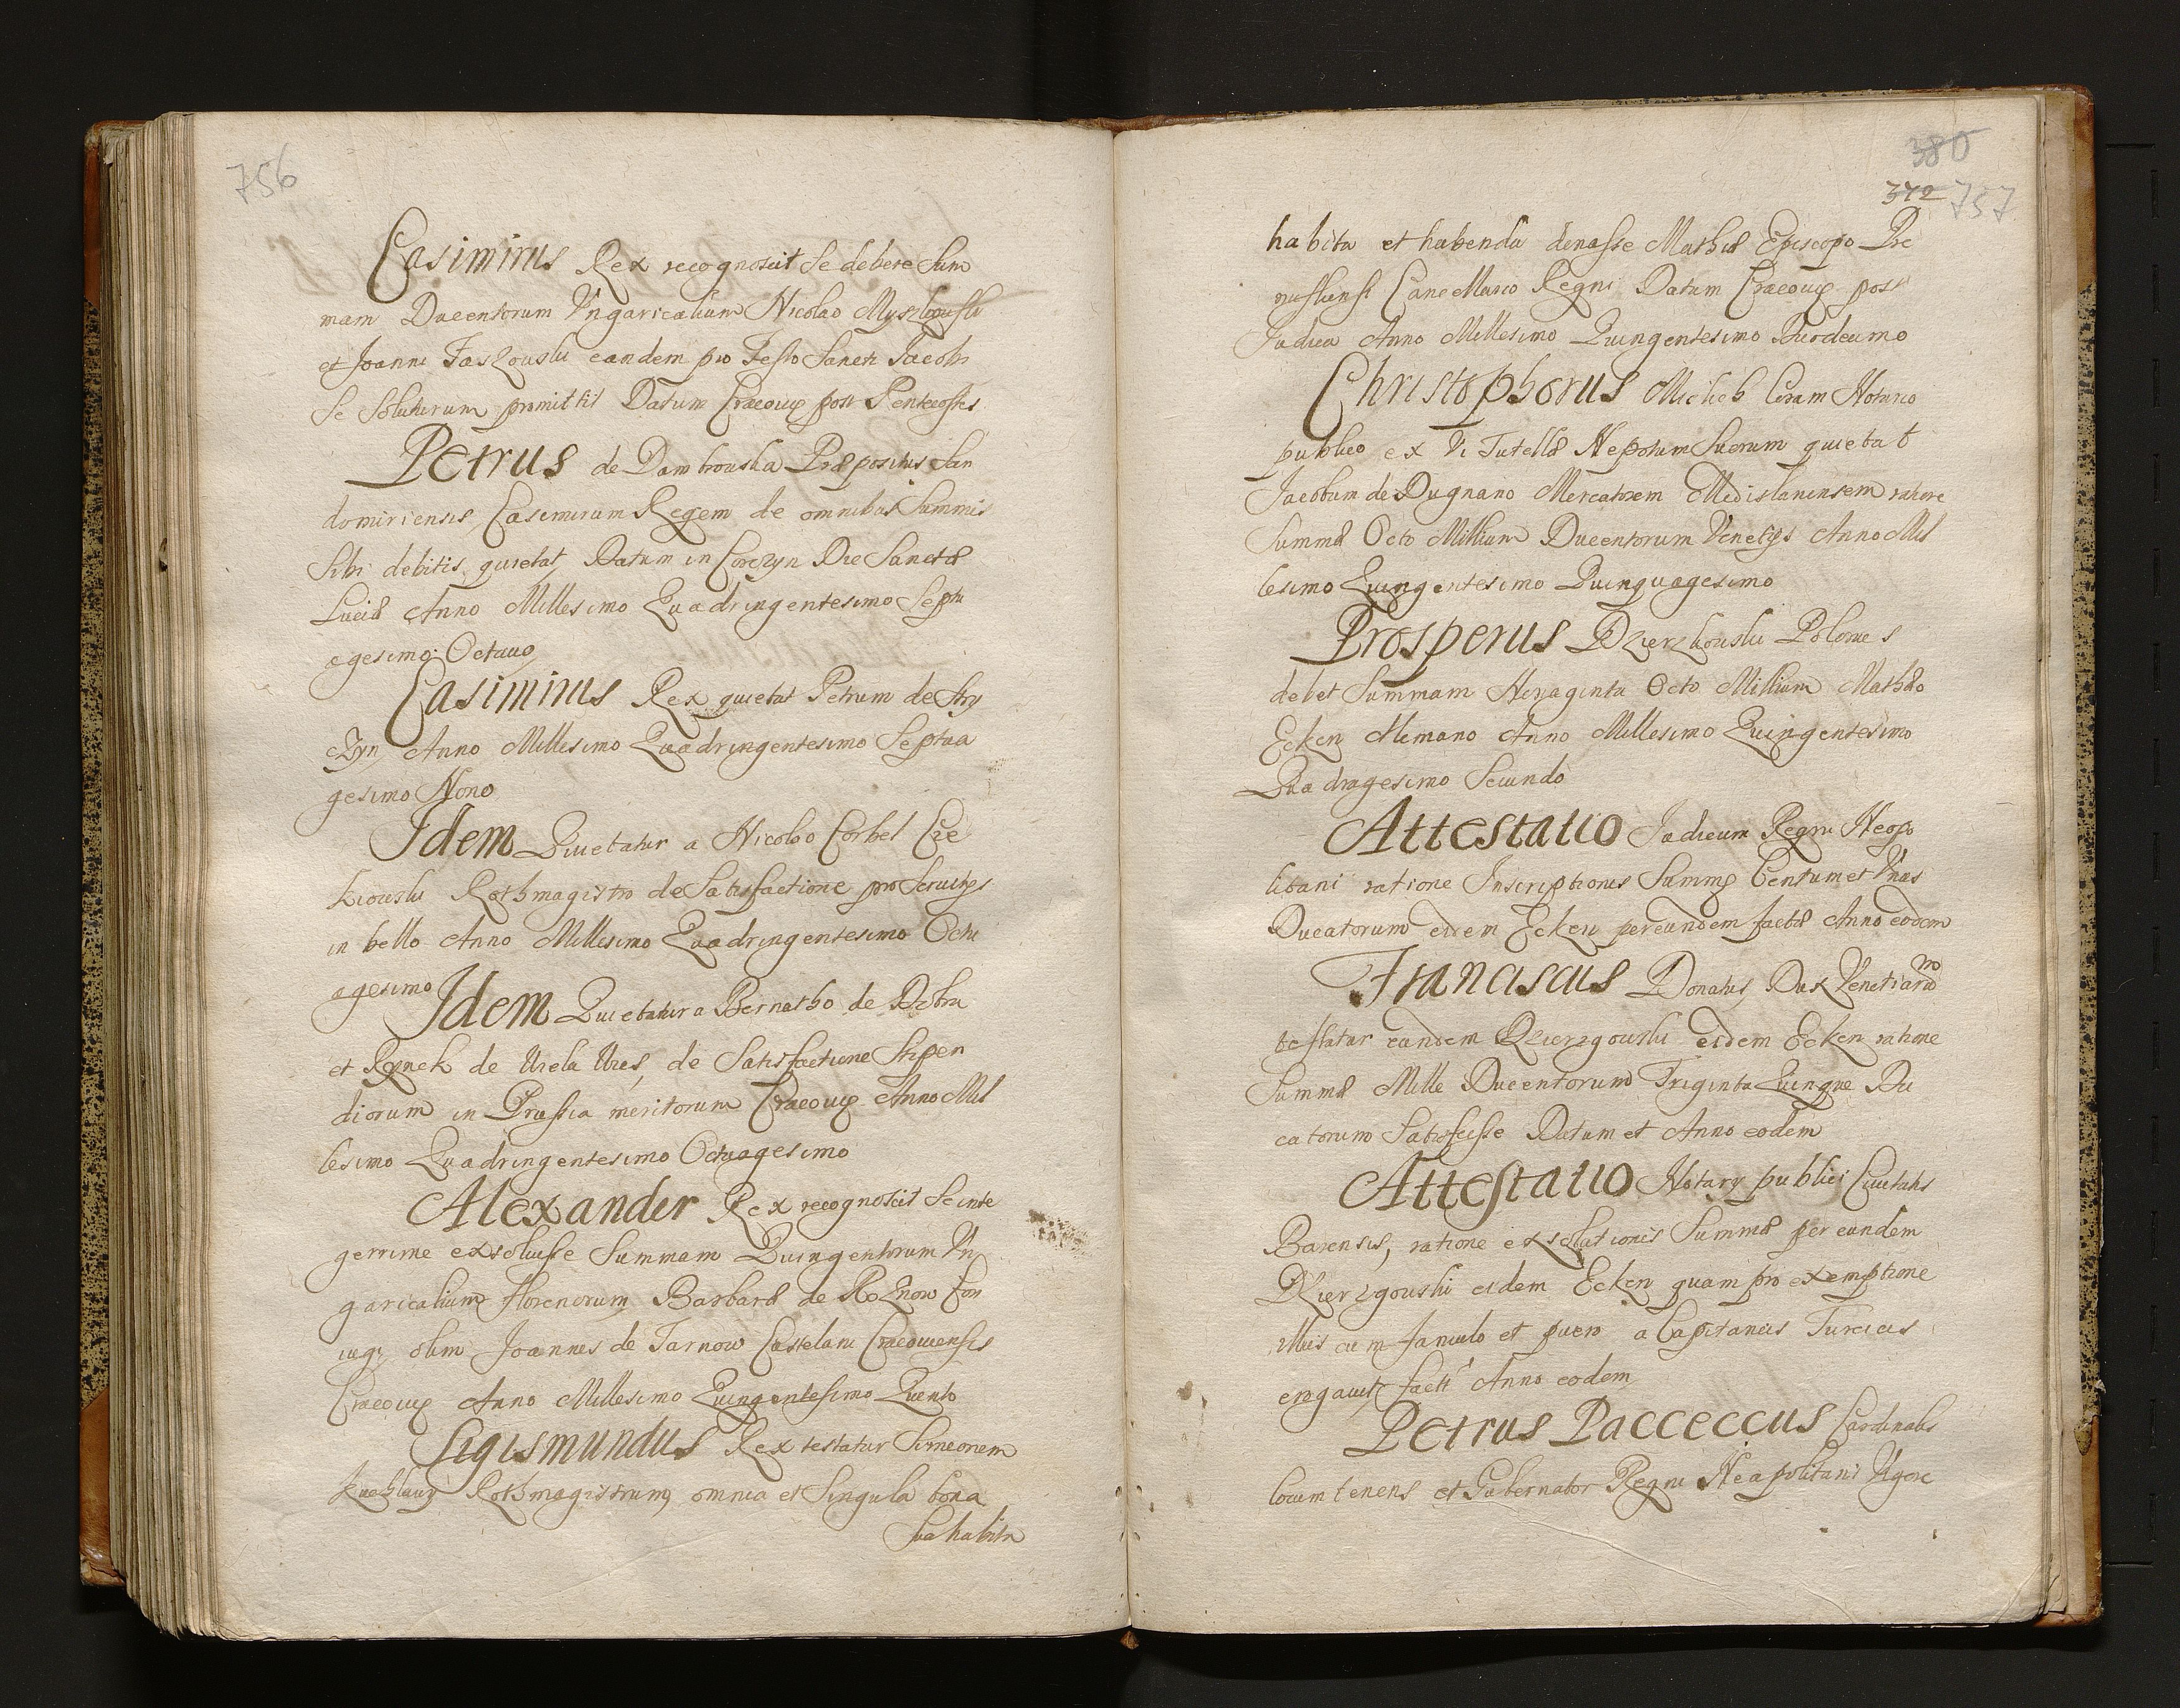 756
Casimirus Rex recognoscit Se debere Sum
mam Ducentorum Vngaricalium Nicolao Myszkouski
et Joanni Taszouski eandem pro Festo Sancti Jacobi
Se Soluturum promittit Datum Cracouiæ post Pentecostes
Petrus de Dambrouska Præpositus San
domiriensis Casimirum Regem de omnibus Summis
Sibi debitis quietat Datum in Corczyn Die Sanctæ
Luciæ Anno Millesimo Quadringentesimo Septu
agesimo Octauo
Casimirus Rex quietat Petrum de Stry
czyn Anno Millesimo Quadringentesimo Septua
gesimo Nono
Idem Quietatur a Nicolao Corbel Cze
kiouski Rothmagistro de Satisfactione pro Seruitys
in bello Anno Millesimo Quadringentesimo Octu
agesimo
Idem Quietatur a Bernatho de Debra
et Rynek de Urela Ures, de Satisfactione Stipen
diorum in Prussia meritorum Cracouiæ Anno Mil
lesimo Quadringentesimo Octuagesimo
Alexander Rex recognoscit Se inte
gerrime exsoluisse Summam Quingentorum Vn
garicalium florenorum Barbaræ de Roznow Con
iugi olim Joannes de Tarnow Castelani Cracouiensis
Cracouiæ Anno Millesimo Quingentesimo Quento
Sigismundus Rex testatur Simeonem
Rothmagistrum omnia et Singula bona
Sua habita
380
372 757
habita et habenda donasse Mathiæ Episcopo Pre
misliensi Cancellario Regni Datum Cracouiæ post
Judica Anno Millesimo Quingentesimo Duodecimo
Christophorus Micheb Coram Notario
publico ex Vi Tutellæ Nepotum Suorum quietat
Jacobum de Dugnano Mercatorem Mediolanensem ratione
Summæ Octo Millium Ducentorum Venetys Anno Mil
lesimo Quingentesimo Quinquagesimo
Prosperus Dzierzkouski Polonus
debet Summam Nonaginta Octo Millium Mathæo
Ecken Alemano Anno Millesimo Quingentesimo
Quadragesimo Secundo
Attestatio Judicum Regni Neapo
litani ratione Inscriptionis Summæ Centum et Vnas
Ducatorum eidem Ecken per eundem factæ Anno eodem
Franciscus Donatus Dux Venetiarum
testatur eundem Dzierzgouski eidem Ecken ratione
Summæ Mille Ducentorum Triginta Quinque Du
catorum Satisfecisse Datum et Anno eodem
Attestatio Notary publici Ciuitatis
Barensis, ratione exsolutionis Summæ per eundem
Dzierzgouski eidem Ecken quam pro exemptione
illius cum famulo et puero a Capitaneis Turcicis
erogauit facti Anno eodem
Petrus Pacceccus Cardinalis
locumtenens et Gubernator Regni Neapolitani Vigore